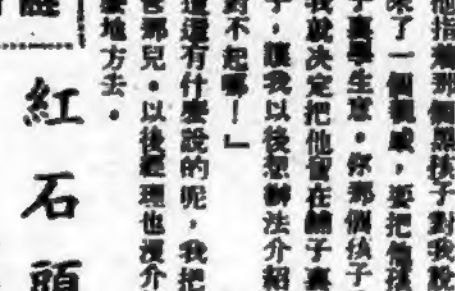 他指着那個點孩子對我說
來了一個親戚,要把他孩
子裏學生意。你那個孩子
我就决定把他留在鋪子裏
子,讓我以後想辦法介紹
對不起嗎!」
這還有什麼說的呢,我把
爸那兒。以後經理也沒介
地方去。
紅石頭